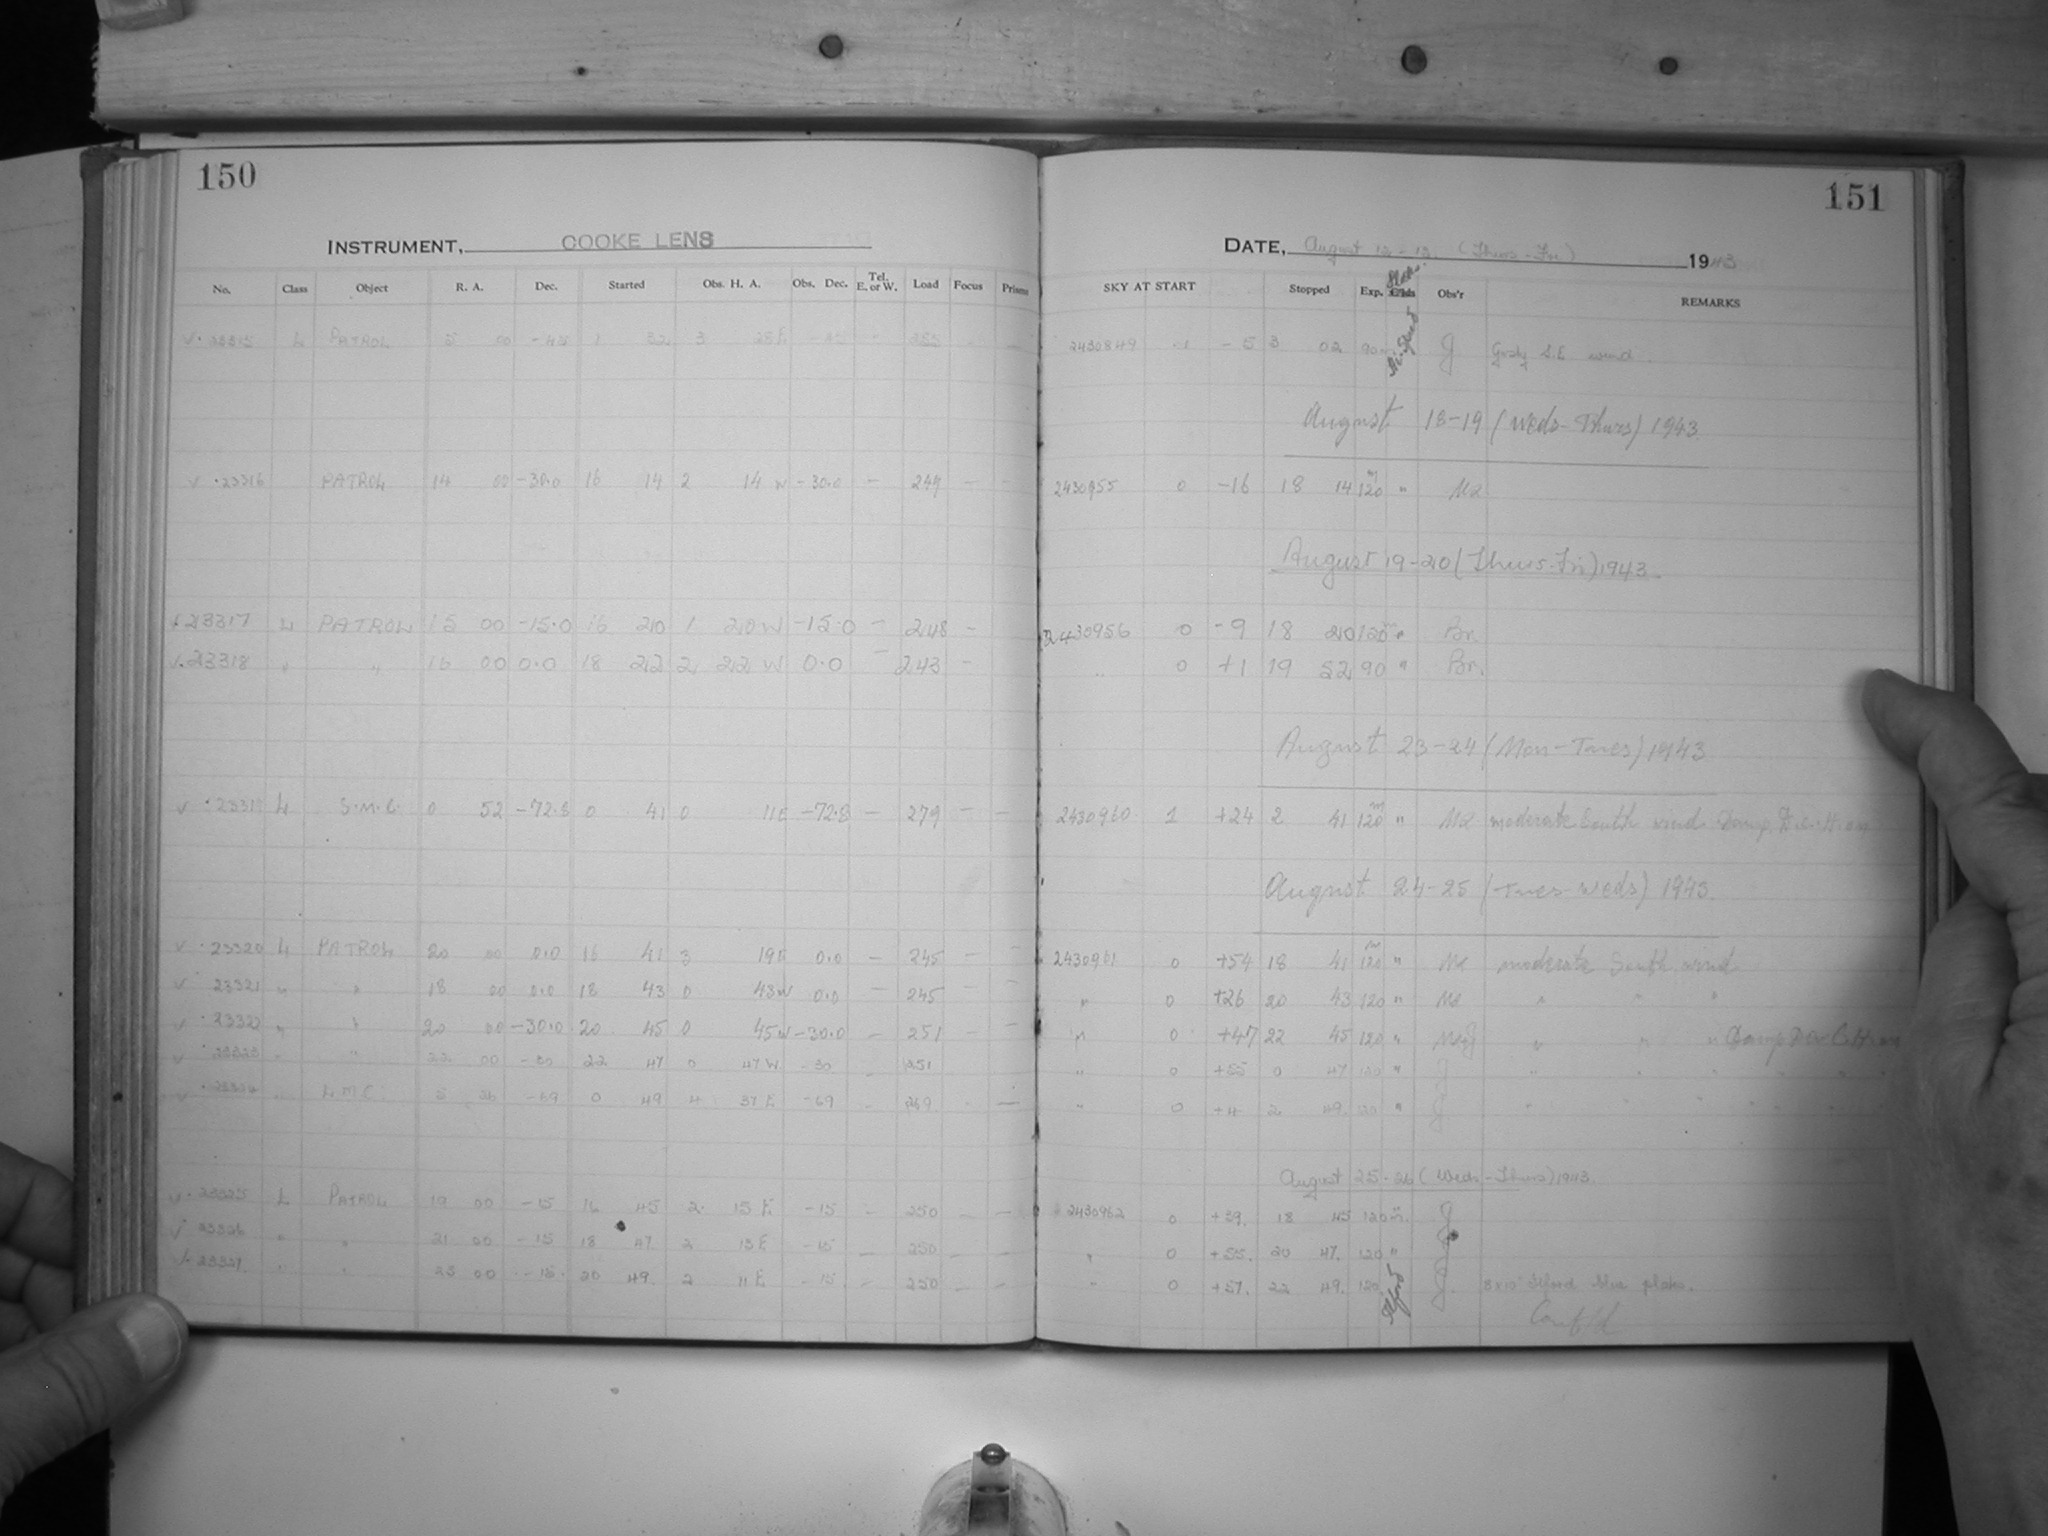 150
INSTRUMENT, COOKE LENS
No. Class Object R. A. Dec. Started Obs. H. A. Obs. Dec. Tel. E. or W. Load Focus Prisms
23315 L PATROL 5 00 -45 1 32 3 28E 255
23316 PATROL 14 00 -30.0 16 14 2 14 W -30.0 - 249 - -
23317 L PATROL 15 00 -15.0 16 20 1 20W -15.0 - 248 -
23318 " " 16 00 0.0 18 22 2 22 W 0.0 - 243 -
L S.M.C. 0 52 -72.8 0 41 0 11E -72.8 - 279 - -
23320 L PATROL 20 00 0.0 16 41 3 19E 0.0 - 245 - -
23321 " " 18 00 0.0 18 43 0 43W 0.0 - 245 - -
23322 " " 20 00 -30.0 20 45 0 45W -30.0 - 251 - -
23323 " " 22 00 -30 22 47 0 47W -30 - 251
23324 " L.M.C. 5 26 -69 0 49 4 37E -69 - 249 - -
23325 L PATROL 19 00 -15 16 45 2 15E -15 - 250 - -
23326 " " 21 00 -15 18 47 2 13E -15 - 250 - -
23327 " " 23 00 -15 20 49 2 11E -15 - 250 - -
151
DATE, August 12-13 (Thurs-Fri) 1943
SKY AT START Stopped Exp. Obs'r REMARKS
2430849 -1 -5 3 02 90m J Gusty S.E wind.
August 18-19 (Weds-Thurs) 1943
2430955 0 -16 18 14 120m " M2
August 19-20 (Thurs-Fri) 1943
2430956 0 -9 18 20 120m " Bn.
" 0 +1 19 52 90 " Bn.
August 23-24 (Mon-Tues) 1943
2430960 1 +24 2 41 120m " M2 moderate South wind Damp D.C.H. on
August 24-25 (Tues-Weds) 1943
2430961 0 +54 18 41 120m " M2 moderate South wind
" 0 +26 20 43 120 " M2 " " "
" 0 +47 22 45 120 " " " " Damp
" 0 +55 0 47 120 " J " " "
" 0 +4 2 49 120 " J " " "
August 25-26 (Weds-Thurs) 1943
2430962 0 +39 18 45 120m. J
" 0 +55. 20 47. 120 " J
" 0 +57. 22 49. 120 Ilford J 8x10 Ilford blue plates.
Cont'd